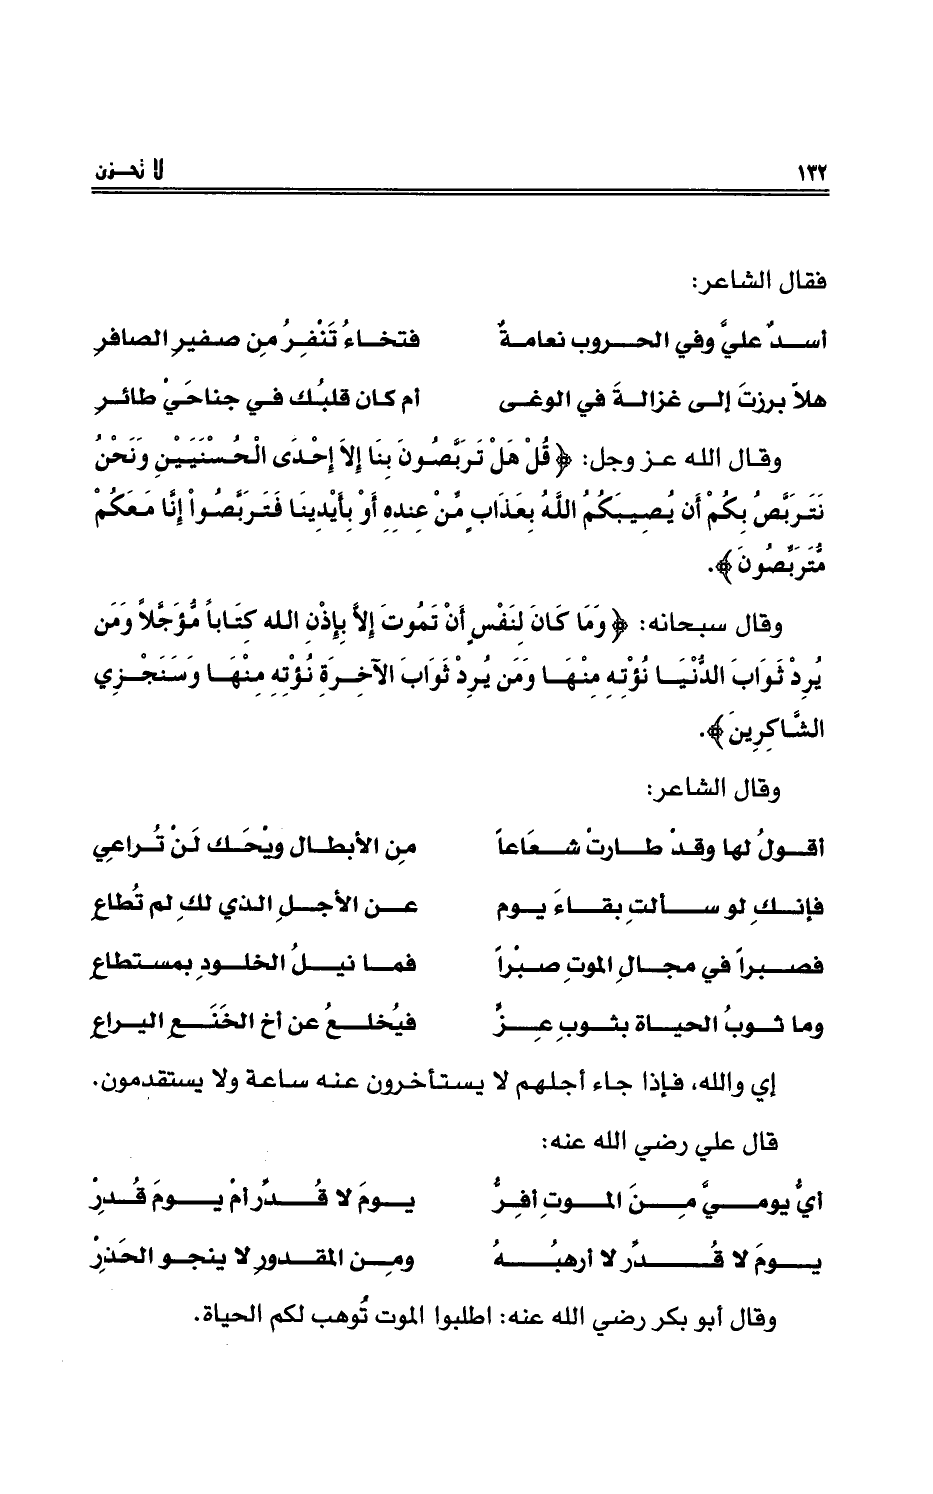 ١٣٢ لا تحزن
فقال الشاعر:
أسدٌ عليَّ وفي الحروب نعامةٌ فتخاءُ تَنْفِرُ مِن صفيرِ الصافرِ
هلاّ برزتَ إلى غزالةَ في الوغى أم كان قلبُك في جناحَيْ طائرِ
وقال الله عز وجل: ﴿قُلْ هَلْ تَرَبَّصُونَ بِنَا إِلاَّ إِحْدَى الْحُسْنَيَيْنِ وَنَحْنُ
نَتَرَبَّصُ بِكُمْ أَن يُصِيبَكُمُ اللَّهُ بِعَذَابٍ مِّنْ عِندِهِ أَوْ بِأَيْدِينَا فَتَرَبَّصُواْ إِنَّا مَعَكُم
مُّتَرَبِّصُونَ﴾.
وقال سبحانه: ﴿وَمَا كَانَ لِنَفْسٍ أَنْ تَمُوتَ إِلاَّ بِإِذْنِ الله كِتَاباً مُّؤَجَّلاً وَمَن
يُرِدْ ثَوَابَ الدُّنْيَا نُؤْتِهِ مِنْهَا وَمَن يُرِدْ ثَوَابَ الآخِرَةِ نُؤْتِهِ مِنْهَا وَسَنَجْزِي
الشَّاكِرِينَ﴾.
وقال الشاعر:
أقولُ لها وقدْ طارتْ شعَاعاً مِن الأبطالِ ويْحَك لَنْ تُراعي
فإنك لو سألتِ بقاءَ يوم عن الأجلِ الذي لكِ لم تُطاعِ
فصبراً في مجالِ الموتِ صبْراً فما نيلُ الخلودِ بمستطاعِ
وما ثوبُ الحياة بثوبِ عزٍّ فيُخلعُ عن أخ الخَنَعِ اليراعِ
إي والله، فإذا جاء أجلهم لا يستأخرون عنه ساعة ولا يستقدمون.
قال علي رضي الله عنه:
أيُّ يوميَّ مِنَ الموتِ أفِرُّ يومَ لا قُدِّر أمْ يومَ قُدِرْ
يومَ لا قُدِّر لا أرهبُهُ ومِن المقدورِ لا ينجو الحَذِرْ
وقال أبو بكر رضي الله عنه: اطلبوا الموت تُوهب لكم الحياة.